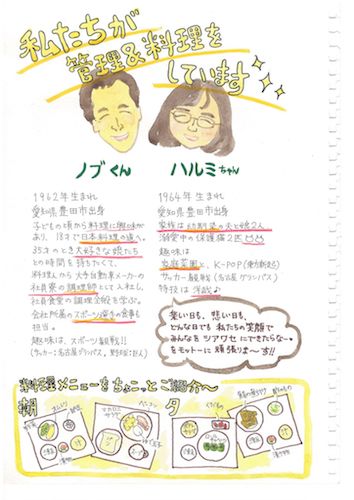 私たちが
管理&料理を
しています
ノブくん
ハルミちゃん
1962年生まれ
愛知県豊田市出身
子どもの頃から料理に興味が
あり、18才で日本料理の道へ。
35才のとき大好きな娘たち
との時間を持ちたくて、
料理人から大手自動車メーカーの
社員寮の調理師として入社し、
社員食堂の調理全般を学ぶ。
会社所属のスポーツ選手の食事も
担当。
趣味は、スポーツ観戦!!
(サッカー:名古屋グランパス、野球:巨人)
1964年生まれ
愛知県豊田市出身
家族は幼馴染の夫と娘2人
溺愛中の保護猫2匹
趣味は
家庭菜園と、K-POP(東方神起)
サッカー観戦(名古屋グランパス)
特技は洋裁♪
楽しい日も、悲しい日も、
どんな日でも 私たちの笑顔で
みんなをシアワセにできたらな〜
をモットーに頑張りま〜す!!
料理メニューをちょこっとご紹介〜
朝
夕
オムレツ
納豆
ご飯
漬物
マカロニサラダ
ベーコン
スープ
くだもの
ご飯
ご飯
漬物